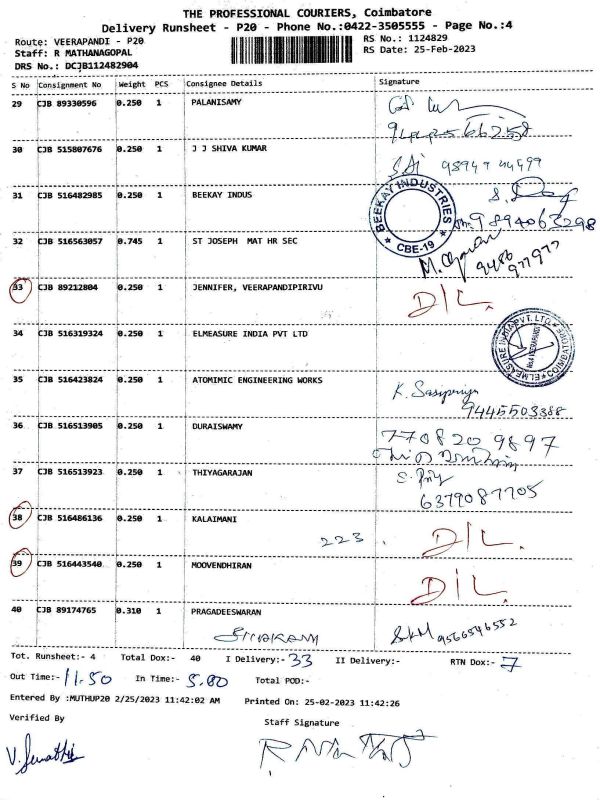 THE PROFESSIONAL COURIERS, Coimbatore
Delivery Runsheet - P20 - Phone No.:0422-3505555 - Page No.:4
Route: VEERAPANDI - P20
RS No.: 1124829
Staff: R MATHANAGOPAL
RS Date: 25-Feb-2023
DRS No.: DCJB112482904
S No Consignment No Weight PCS Consignee Details Signature
29 CJB 89330596 0.250 1 PALANISAMY
30 CJB 515807676 0.250 1 J J SHIVA KUMAR
31 CJB 516482985 0.250 1 BEEKAY INDUS
BEEKAY INDUSTRIES
★ CBE-19 ★
9894063298
32 CJB 516563057 0.745 1 ST JOSEPH MAT HR SEC
9486
977977
33 CJB 89212804 0.250 1 JENNIFER, VEERAPANDIPIRIVU D/L.
34 CJB 516319324 0.250 1 ELMEASURE INDIA PVT LTD
35 CJB 516423824 0.250 1 ATOMIMIC ENGINEERING WORKS
9445503388
36 CJB 513513905 0.250 1 DURAISWAMY
7708209897
37 CJB 516513923 0.250 1 THIYAGARAJAN
6379087705
38 CJB 516486136 0.250 1 KALAIMANI 223. D/L.
39 CJB 516443540 0.250 1 MOOVENDHIRAN D/L.
40 CJB 89174765 0.310 1 PRAGADEESWARAN
9566546552
Tot. Runsheet:- 4 Total Dox:- 40 I Delivery:- 33 II Delivery:- RTN Dox:- 7
Out Time:- 11.50 In Time:- 5.00 Total POD:-
Entered By :MUTHUP20 2/25/2023 11:42:02 AM Printed On: 25-02-2023 11:42:26
Verified By
Staff Signature